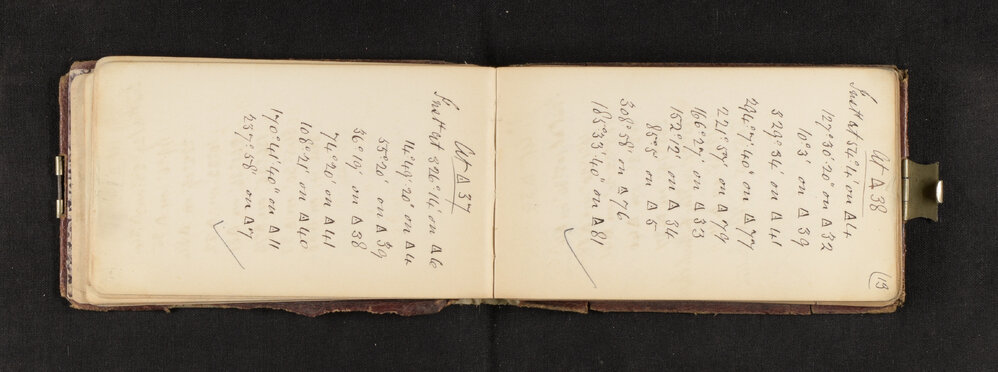 At Δ 37
Inst at 326°14' on Δ 6
14°49'20" on Δ 4
55°20' on Δ 39
56°19' on Δ 38
74°20' on Δ 41
108°21' on Δ 40
170°41'40" on Δ 11
237°58' on Δ 7
(13)
At Δ 38
Inst at 54°4' on Δ 4
127°30'20" on Δ 32
10°3' on Δ 39
329°34' on Δ 41
294°7'40" on Δ 77
221°57' on Δ 79
166°27' on Δ 33
152°12' on Δ 34
85°5' on Δ 5
308°58' on Δ 76
185°33'40" on Δ 81